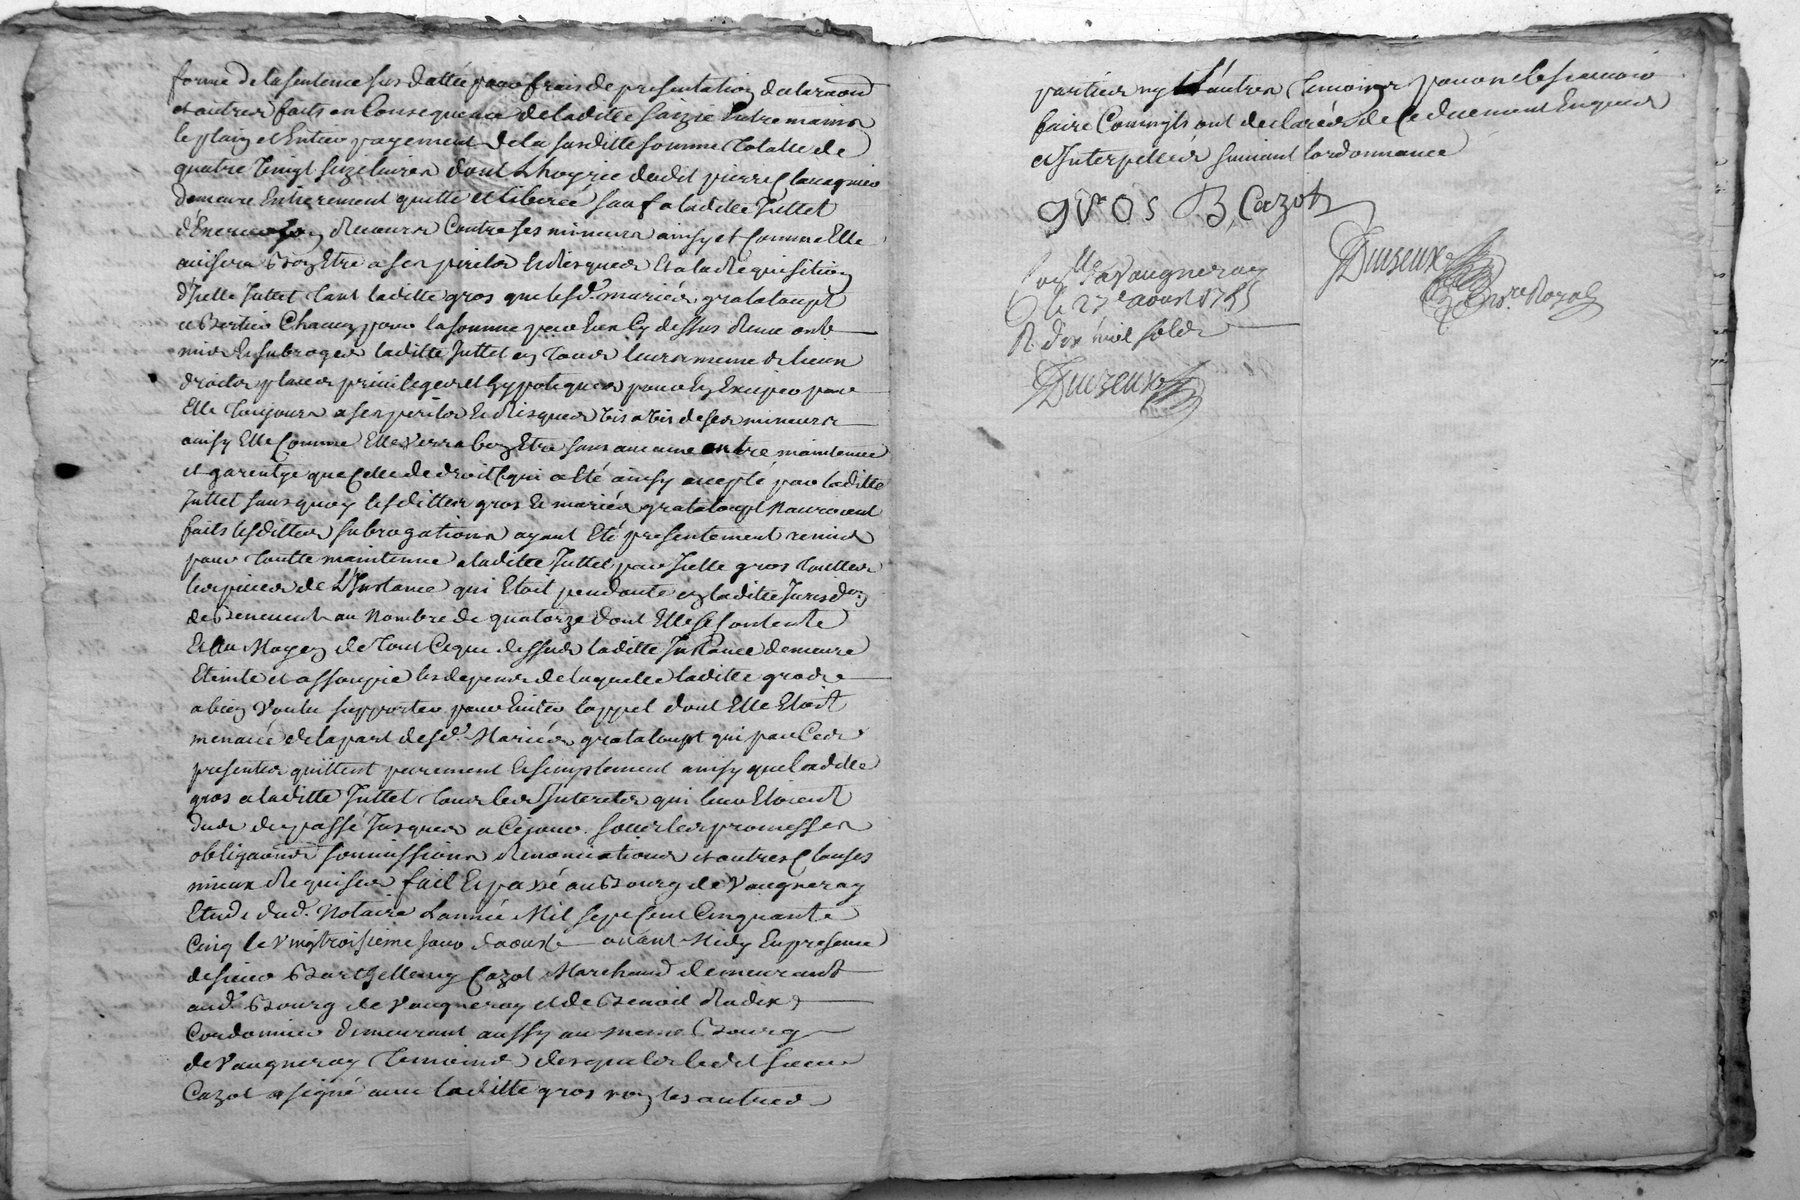 forme de la sentence sus dattée pour frais de presentation declaraon
et autres faits en Consequence de laditte saizie Entre mains
le plain et Entier payement de la susditte somme totalle de
quatre vingt seize livres dont Lhoyrie dudit pierre Clavagnier
demeure Entierement quitte et liberée sauf a laditte Juttet
recours Contre ses mineurs ainsy et Comme Elle
avisera Bon Etre a ses perils & risques Et a la requisition
d'jcelle Juttet tant laditte gros que lesd. mariés grataloupt
et Bertier Chacun pour la somme par Eux Cy dessus reçue ont
mis & subrogés laditte Juttet en tous leurs meme & lieux
droits places privileges et hypoteques pour En Exciper par
Elle toujours a ses perils & risques vis a vis de ses mineurs
ainsy Elle Comme Elle verra bon Etre sans aucune autre maintenue
et garentye que Celle de droit Ce qui a été ainsy accepté par laditte
Juttet sans quoy lesdittes gros & mariés grataloupt n'auroient
faits lesdittes subrogations ayant Eté presentement remis
pour toutte maintenue a laditte Juttet par jcelle gros touttes
les pieces de L'Instance qui Etoit pendante en laditte Jurisdon
de Benevent au Nombre de quatorze dont Elle se Contente
Et Au Moyen de tout Ce que dessus laditte Instance demeure
Eteinte et assoupie les depens de laquelle laditte gros
a bien voulu supporter pour Eviter l'appel dont Elle Etoit
menacée de la part desd. Mariés grataloupt qui par Ces
presentes quittent purement & simplement ainsy que laditte
gros a laditte Juttet tous les Interets qui leur Etoient
dus du passé Jusques a Ce jour. sous les promesses
obligaons soumissions Renonciations et autres Clauses
mieux Requises fait & passé au Bourg de Vaugneray
Etude dud. Notaire L'année Mil sept Cent Cinquante
Cinq le vingtroisieme jour d'aoust avant Midy En presence
de sieur Barthellemy Cazot Marchand demeurant
aud. Bourg de Vaugneray et de Benoit Radix
Cordonnier demeurant aussy au meme Bourg
de Vaugneray temoins desquels ledit sieur
Cazot a signé avec laditte gros non les autres
parties ny L'autre temoins pour ne le scavoir
faire Comm'ils ont declarés de Ce duement Enquis
& Interpellés suivant l'ordonnance
gros B, Cazot
Duiseux
Nore Royal
Conlle a Vaugneray
le 27e aoust 1755
R. dix huit sols
Duizeux